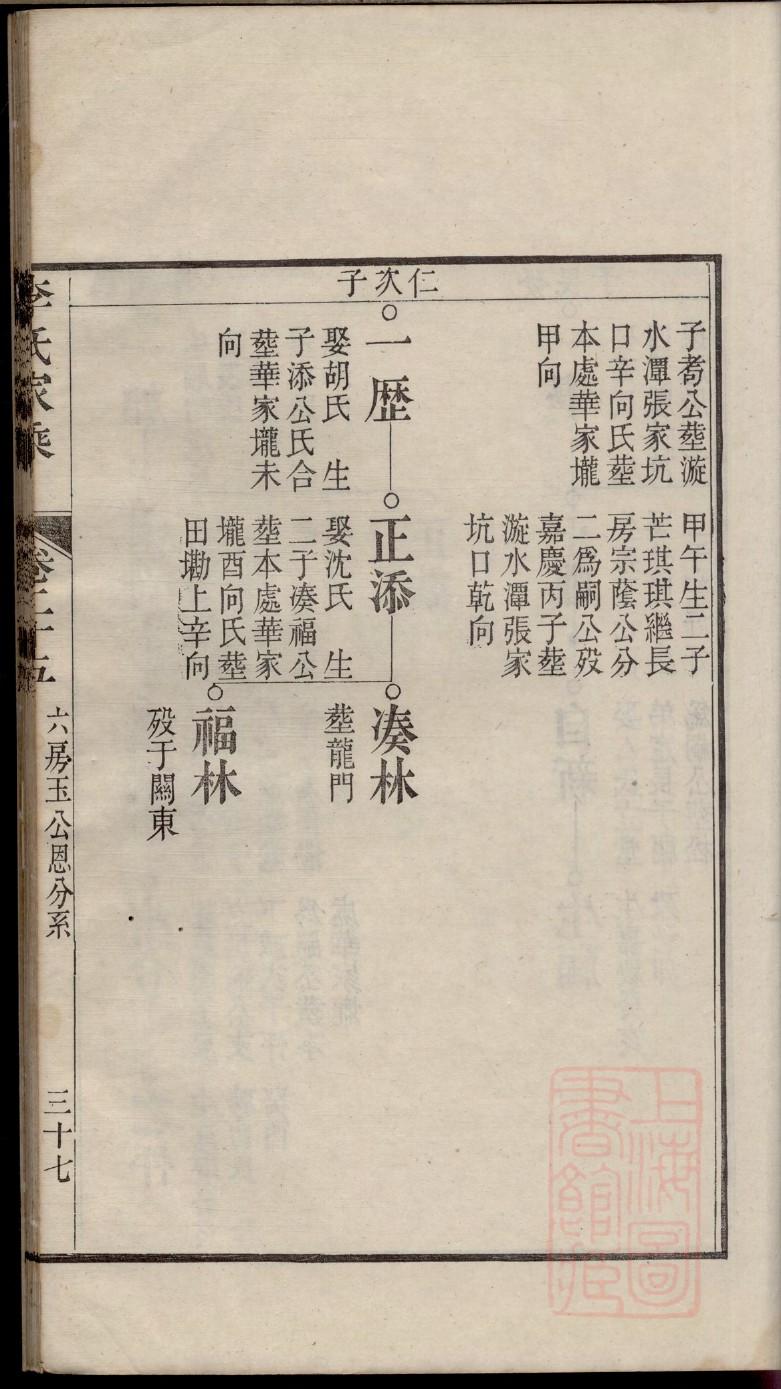 仁次子
子耇公塟漩
水潭張家坑
口辛向氏塟
本處華家壠
甲向
甲午生二子
芒琪琪繼長
房宗蔭公分
二爲嗣公歿
嘉慶丙子塟
漩水潭張家
坑口乾向
一歴
娶胡氏 生
子添公氏合
塟華家壠未
向
正添
娶沈氏 生
二子湊福公
塟本處華家
壠酉向氏塟
田墈上辛向
湊林
塟龍門
福林
歿于關東
李氏家乘
卷二十五
六房玉公恩分系
三十七
上海圖
書館藏